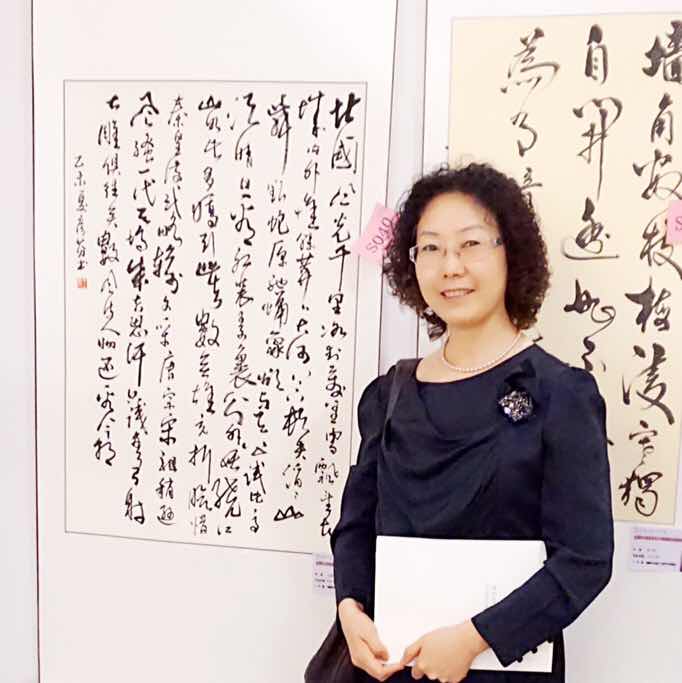 墙角数枝梅凌寒獨
自開遥知不
為有暗
S040
北國風光千里冰封萬里雪飄望長
城内外惟餘莽莽大河上下頓失滔滔山
舞銀蛇原馳蠟象欲與天公試比高
須晴日看紅裝素裹分外妖嬈江
山如此多嬌引無數英雄競折腰惜
秦皇漢武略輸文采唐宗宋祖稍遜
風騷一代天驕成吉思汗只識彎弓射
大雕俱往矣數風流人物還看今朝
乙未夏